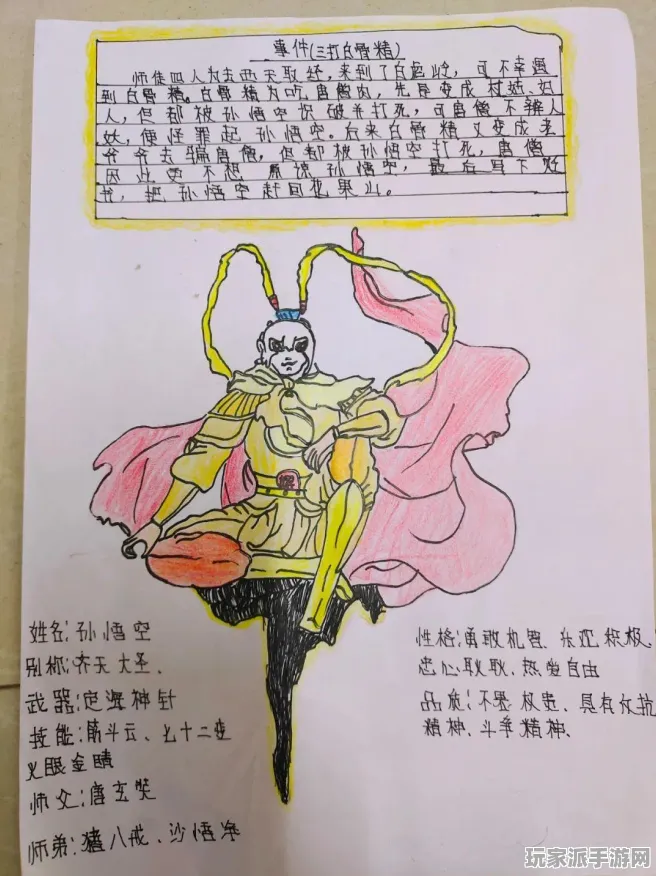 事件(三打白骨精)
师徒四人为去西天取经,来到了白虎岭,可不幸遇
到白骨精。白骨精为吃唐僧肉,先后变成村姑、妇
人,但都被孙悟空识破并打死,可唐僧不辨人
妖,便怪罪起孙悟空。后来白骨精又变成老
爷爷去骗唐僧,但都被孙悟空打死,唐僧
因此更不想原谅孙悟空,最后写下贬
书,把孙悟空赶回花果山。
姓名:孙悟空
别称:齐天大圣.
武器:定海神针
技能:筋斗云、七十二变
火眼金睛
师父:唐玄奘
师弟:猪八戒、沙悟净
性格:勇敢机智、乐观积极
忠心耿耿、热爱自由
品质:不畏权贵、具有反抗
精神、斗争精神.
玩家派手游网